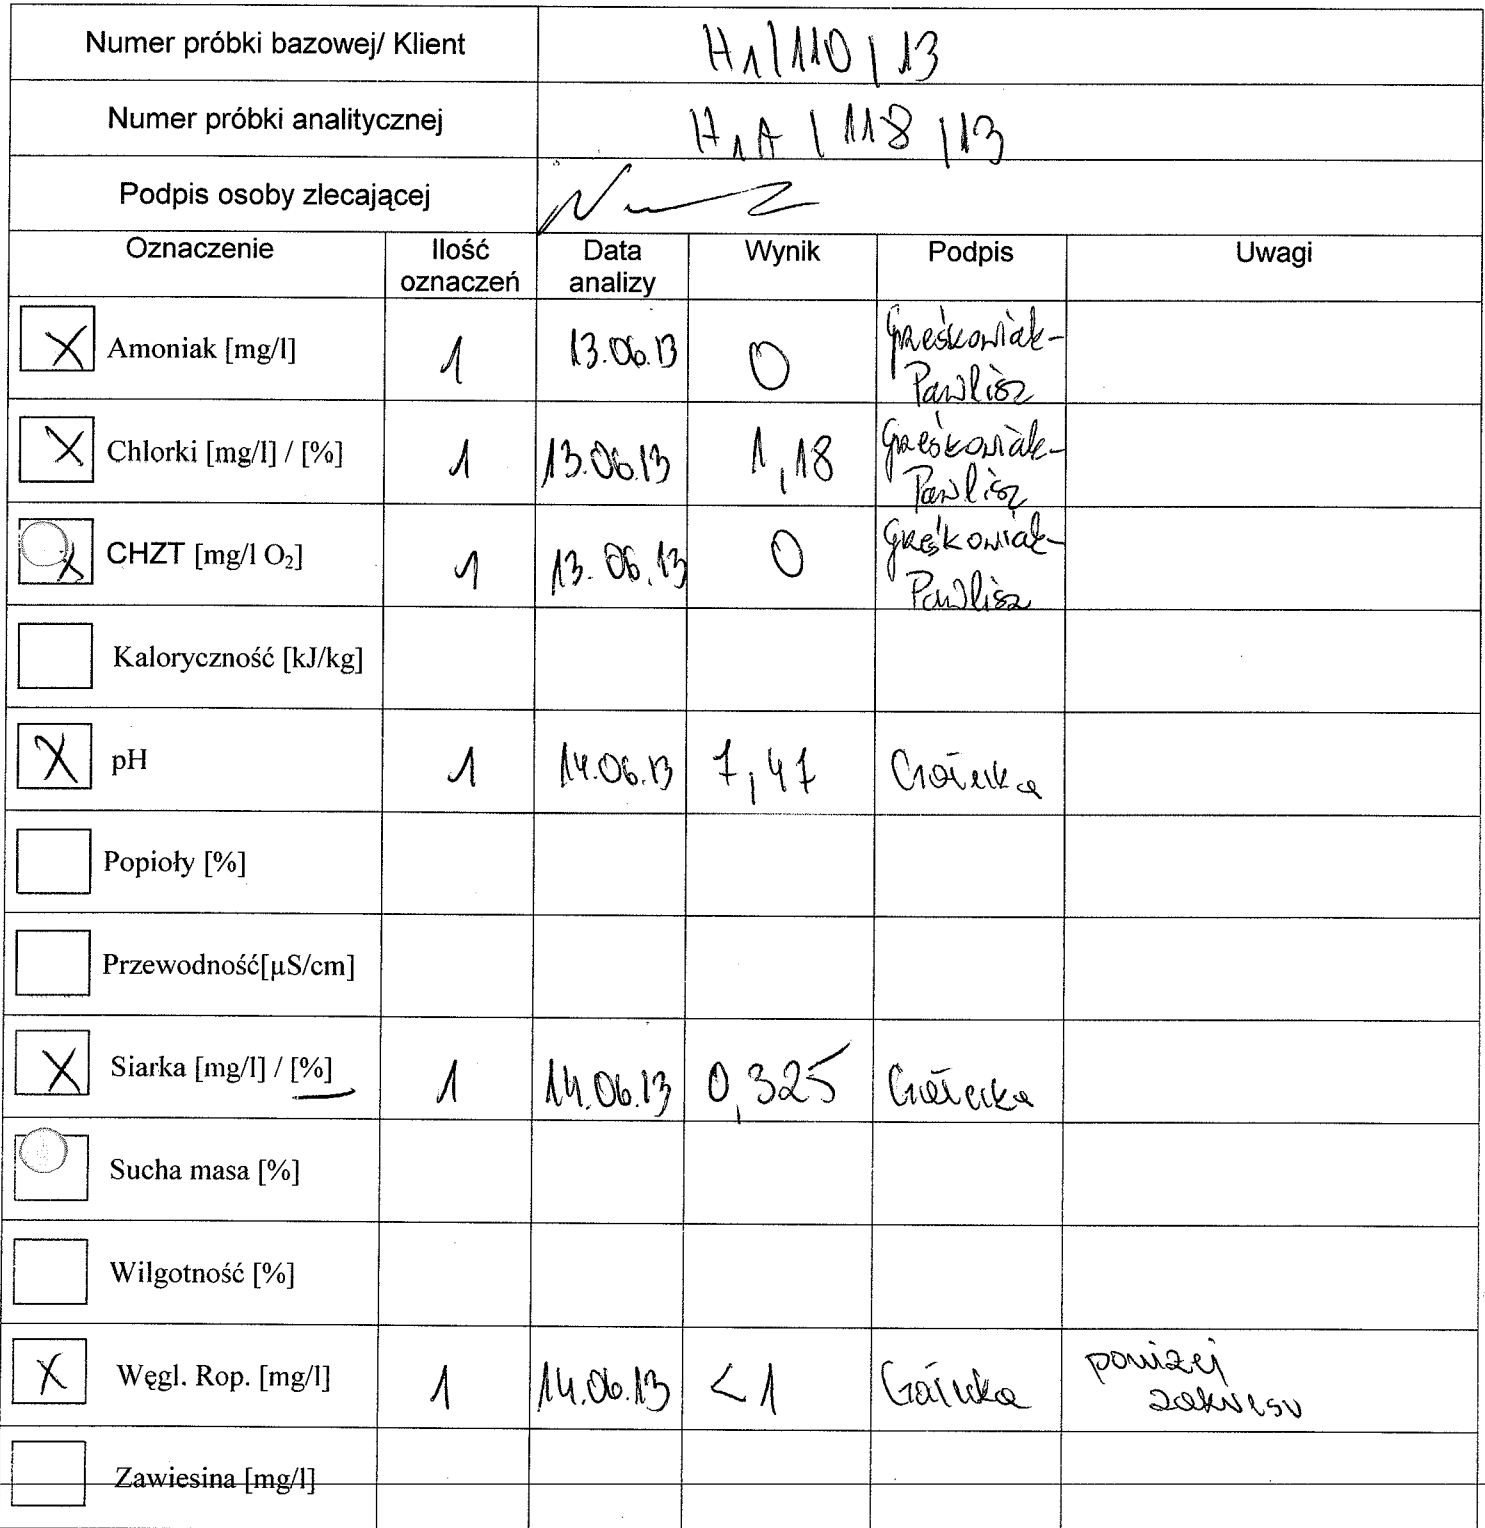 Numer próbki bazowej/ Klient H1/110/13
Numer próbki analitycznej H1A/118/13
Podpis osoby zlecającej
Oznaczenie Ilość oznaczeń Data analizy Wynik Podpis Uwagi
X Amoniak [mg/l] 1 13.06.13 0 Greśkowiak-Pawlisz
X Chlorki [mg/l] / [%] 1 13.06.13 1,18 Greśkowiak-Pawlisz
X CHZT [mg/l O₂] 1 13.06.13 0 Greśkowiak-Pawlisz
Kaloryczność [kJ/kg]
X pH 1 14.06.13 7,47
Popioły [%]
Przewodność[µS/cm]
X Siarka [mg/l] / [%] 1 14.06.13 0,325
Sucha masa [%]
Wilgotność [%]
X Węgl. Rop. [mg/l] 1 14.06.13 <1 poniżej zakresu
Zawiesina [mg/l]